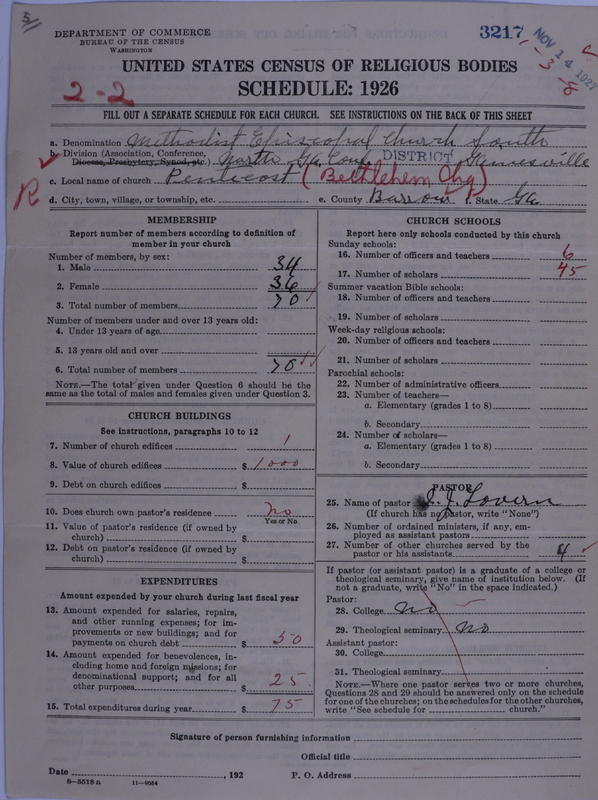 DEPARTMENT OF COMMERCE
BUREAU OF THE CENSUS
WASHINGTON
3217
NOV 14 1927
1-3-8
UNITED STATES CENSUS OF RELIGIOUS BODIES
SCHEDULE: 1926
2-2
FILL OUT A SEPARATE SCHEDULE FOR EACH CHURCH. SEE INSTRUCTIONS ON THE BACK OF THIS SHEET
a. Denomination Methodist Episcopal Church South
b. Division (Association, Conference, Diocese, Presbytery, Synod, etc.) North Ga. Conf. DISTRICT Gainesville
R
c. Local name of church Pentecost (Bethlehem Chg)
d. City, town, village, or township, etc. e. County Barrow f. State Ga
MEMBERSHIP
Report number of members according to definition of
member in your church
Number of members, by sex:
1. Male 34
2. Female 36
3. Total number of members 70
Number of members under and over 13 years old:
4. Under 13 years of age
5. 13 years old and over
6. Total number of members 70
NOTE.—The total given under Question 6 should be the
same as the total of males and females given under Question 3.
CHURCH BUILDINGS
See instructions, paragraphs 10 to 12
7. Number of church edifices 1
8. Value of church edifices $1000
9. Debt on church edifices $
10. Does church own pastor's residence no
Yes or No
11. Value of pastor's residence (if owned by
church) $
12. Debt on pastor's residence (if owned by
church) $
EXPENDITURES
Amount expended by your church during last fiscal year
13. Amount expended for salaries, repairs,
and other running expenses; for im-
provements or new buildings; and for
payments on church debt $ 50
14. Amount expended for benevolences, in-
cluding home and foreign missions; for
denominational support; and for all
other purposes $ 25
15. Total expenditures during year $ 75
CHURCH SCHOOLS
Report here only schools conducted by this church
Sunday schools:
16. Number of officers and teachers 6
17. Number of scholars 45
Summer vacation Bible schools:
18. Number of officers and teachers
19. Number of scholars
Week-day religious schools:
20. Number of officers and teachers
21. Number of scholars
Parochial schools:
22. Number of administrative officers
23. Number of teachers—
a. Elementary (grades 1 to 8)
b. Secondary
24. Number of scholars—
a. Elementary (grades 1 to 8)
b. Secondary
PASTOR
25. Name of pastor J. Lovern
(If church has no pastor, write "None")
26. Number of ordained ministers, if any, em-
ployed as assistant pastors
27. Number of other churches served by the
pastor or his assistants 4
If pastor (or assistant pastor) is a graduate of a college or
theological seminary, give name of institution below. (If
not a graduate, write "No" in the space indicated.)
Pastor:
28. College No
29. Theological seminary No
Assistant pastor:
30. College
31. Theological seminary
NOTE.—Where one pastor serves two or more churches,
Questions 28 and 29 should be answered only on the schedule
for one of the churches; on the schedules for the other churches,
write "See schedule for church."
Signature of person furnishing information
Official title
Date , 192 P. O. Address
8—5518 a 11—9054